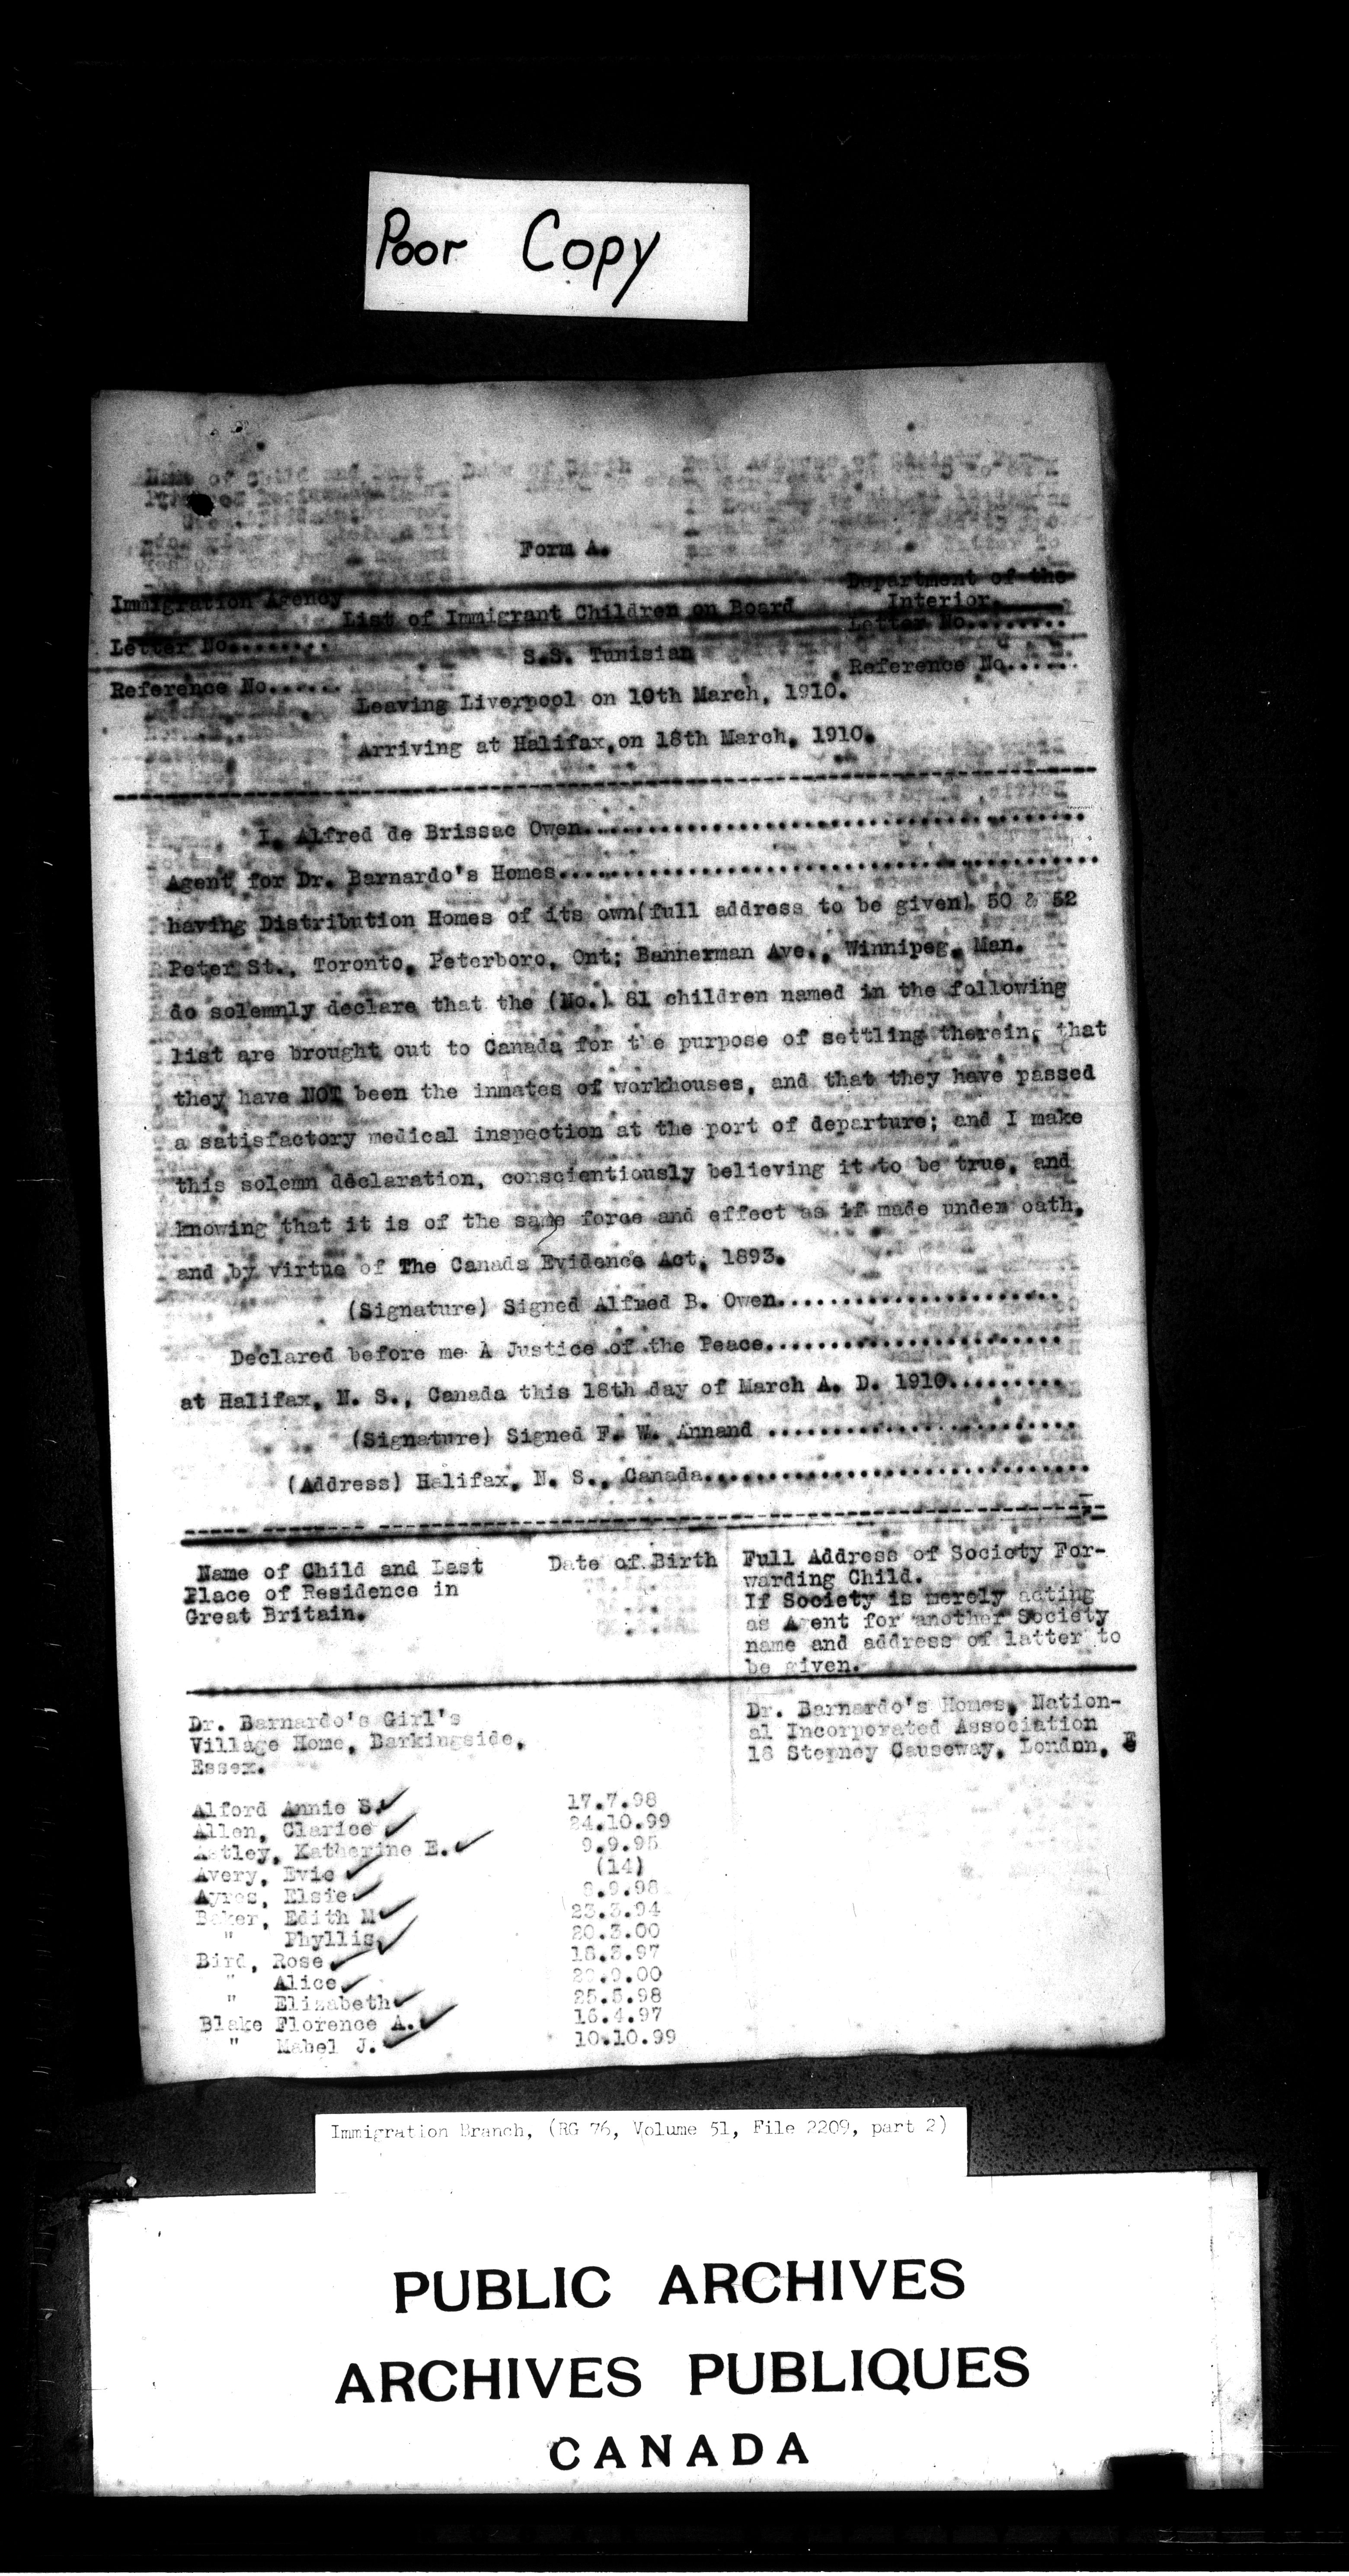 Poor Copy
Form A.
Immigration Agency
Department of the
Interior.
List of Immigrant Children on Board
Letter No........
Letter No........
S.S. Tunisian
Reference No......
Reference No......
Leaving Liverpool on 10th March, 1910.
Arriving at Halifax, on 18th March, 1910.
I, Alfred de Brissac Owen
Agent for Dr. Barnardo's Homes
having Distribution Homes of its own(full address to be given) 50 & 52
Peter St., Toronto, Peterboro, Ont; Bannerman Ave., Winnipeg, Man.
do solemnly declare that the (No.) 81 children named in the following
list are brought out to Canada for the purpose of settling therein, that
they have NOT been the inmates of workhouses, and that they have passed
a satisfactory medical inspection at the port of departure; and I make
this solemn declaration, conscientiously believing it to be true, and
knowing that it is of the same force and effect as if made under oath,
and by virtue of The Canada Evidence Act, 1893.
(Signature) Signed Alfred B. Owen
Declared before me A Justice of the Peace
at Halifax, N. S., Canada this 18th day of March A. D. 1910
(Signature) Signed F. W. Annand
(Address) Halifax, N. S., Canada
Name of Child and Last
Place of Residence in
Great Britain.
Date of Birth
Full Address of Society For-
warding Child.
If Society is merely acting
as Agent for another Society
name and address of latter to
be given.
Dr. Barnardo's Girl's
Village Home, Barkingside,
Essex.
Dr. Barnardo's Homes, Nation-
al Incorporated Association
18 Stepney Causeway, London, E
Alford Annie S. 17.7.98
Allen, Clarice 24.10.99
Astley, Katherine E. 9.9.95
Avery, Evie (14)
Ayres, Elsie .9.98
Baker, Edith M 23.3.94
" Phyllis 20.3.00
Bird, Rose 18.3.97
" Alice .00
" Elizabeth 25.5.98
Blake Florence A. 16.4.97
" Mabel J. 10.10.99
Immigration Branch, (RG 76, Volume 51, File 2209, part 2)
PUBLIC ARCHIVES
ARCHIVES PUBLIQUES
CANADA